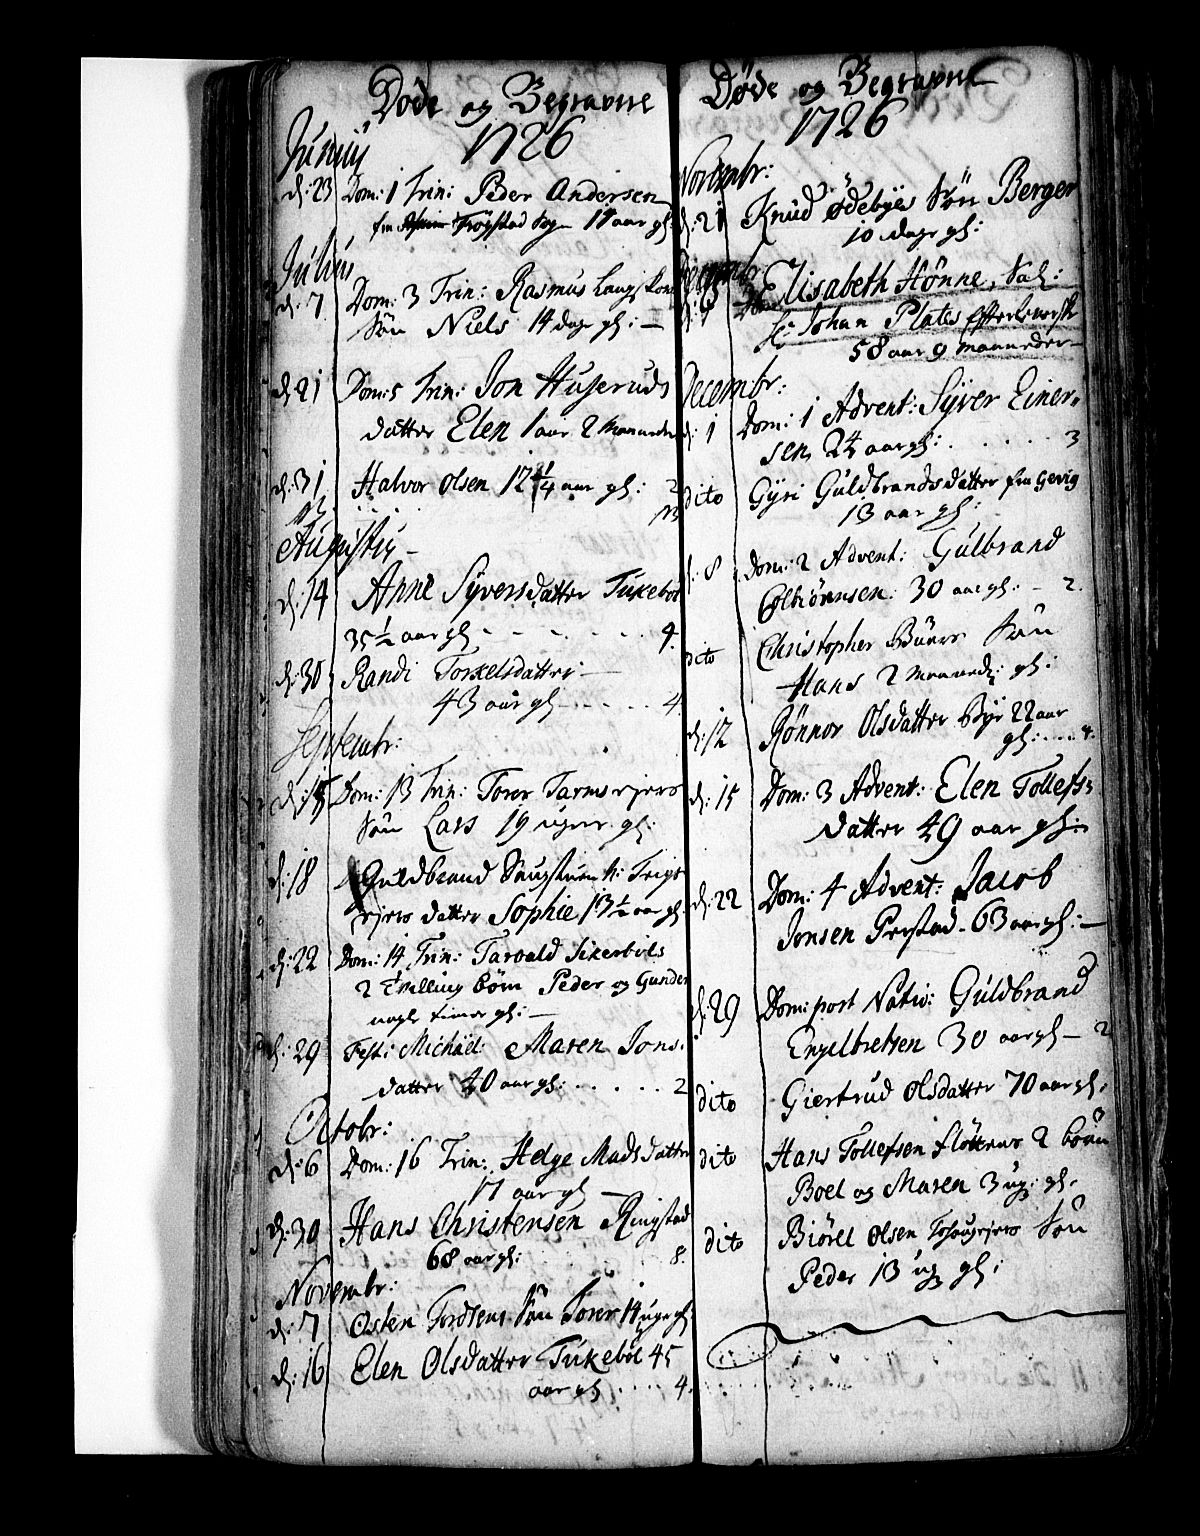 Døde og Begravne
1726
Junij
d: 23 Dom: 1 Trin: Peder Andersen
fra Trøgstad Sogn 17 aar gl:
Julius
d: 7. Dom: 3 Trin: Rasmus
Søn Niels 14 dage gl: —
d: 21 Dom: 5 Trin: Jon Huseruds
datter Elen 1 aar 2 Maaneder
d: 31 Halvor Olsen 12 1/4 aar gl: 2
Augustij —
d: 14 Anne Syversdatter Tukebøl
35 1/2 aar gl - - - . . . . . 4.
d: 30 Randi Torkelsdatter —
43 aar gl - . . . . 4.
Septembr:
d: 15 Dom: 13 Trin: Torer
Søn Lars 19 uger gl:
d: 18 Guldbrand
datter Sophie 13 1/2 aar gl:
d: 22 Dom: 14 Trin: Tarvald
2 Tvilling børn Peder og Gunder
nogle timer gl: —
d: 29 Fest: Michäel: Maren Jons-
datter 40 aar gl: . . . . . 2
Octobr:
d: 6 Dom: 16 Trin: Helge Madsdatter
17 aar gl —
d: 30 Hans Christensen Ringstad
68 aar gl: 8.
Novembr:
d: 7 Osten Søn Torer 14 uger gl:
d: 16 Elen Olsdatter Tukebøl 45
aar gl . . . . 4.
Døde og Begravne
1726
Novembr:
d: 21 Knud Ødebyes Søn Berger
10 dage gl:
Elisabeth Hønne, Sal:
Hr: Johan Plates Efterleverske
58 aar 9 maaneder —
Decembr:
d: 1 Dom: 1 Advent: Syver Einer-
sen 24 aar gl: . . . . . . 3
dito Gyri Guldbrandsdatter fra
13 aar gl:
d: 8 Dom: 2 Advent: Gulbrand
30 aar gl: — 2.
dito Christopher Søn
Hans 2 Maaned: gl:
d: 12 Rønnor Olsdatter 22 aar
gl: . . . . 4.
d: 15 Dom: 3 Advent: Elen Tollefs-
datter 49 aar gl:
d: 22 Dom: 4 Advent: Jacob
Jonsen 63 aar gl: —
d: 29 Dom: post Nativ: Guldbrand
Engelbretsen 30 aar gl — 2
dito Giertrud Olsdatter 70 aar gl.
dito Hans Tollefsen 2 børn
Boel og Maren 3 ug: gl.
dito Biörel Olsen Søn
Peder 13 ug gl: